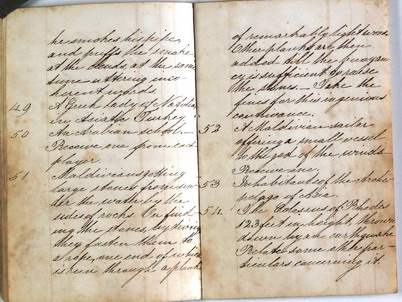 he smokes his pipe,
and puffs the smoke
at the clouds, at the same
time uttering inco-
herent words
49 A Greek lady of Naxos
in Asiatic Turkey
50 An Arabian school.—
Receive one from each
player.
51 Maldivians getting
large stones from un-
der the water by the
sides of rocks. On find-
ing the stones, by diving
they fasten them to
a rope, one end of which
is run through a plank
of remarkably light wood
Other planks are then
added till the buoyan-
cy is sufficient to raise
the stones.— Take the
fines for this ingenious
contrivance.
52 A Maldivian sailor
offering a small vessel
to the god of the winds
Receive one,
53 Inhabitants of the Archi-
pelago of Chiloe.
54 The Colossus of Rhodes
125 feet in height thrown
down by an earthquake
Relate some other par-
ticulars concerning it.